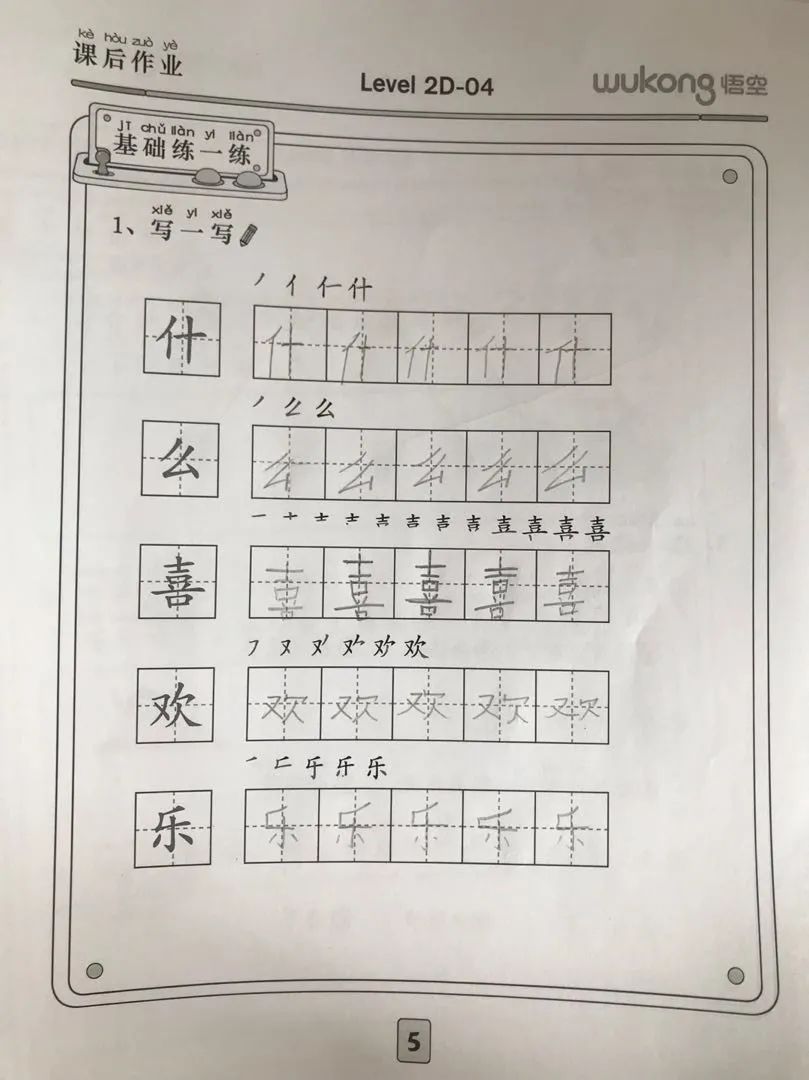 kè hòu zuò yè
课后作业
Level 2D-04
wukong悟空
jī chǔ liàn yi liàn
基础练一练
xiě yi xiě
1、写一写
丿 亻 仁 什
什 什 什 什 什 什
丿 𠂈 么
么 么 么 么 么 么
一 十 士 吉 吉 吉 壴 喜 喜
喜 喜 喜 喜 喜 喜
㇇ 又 欢
欢 欢 欢 欢 欢 欢
乐
乐 乐 乐 乐 乐 乐
5